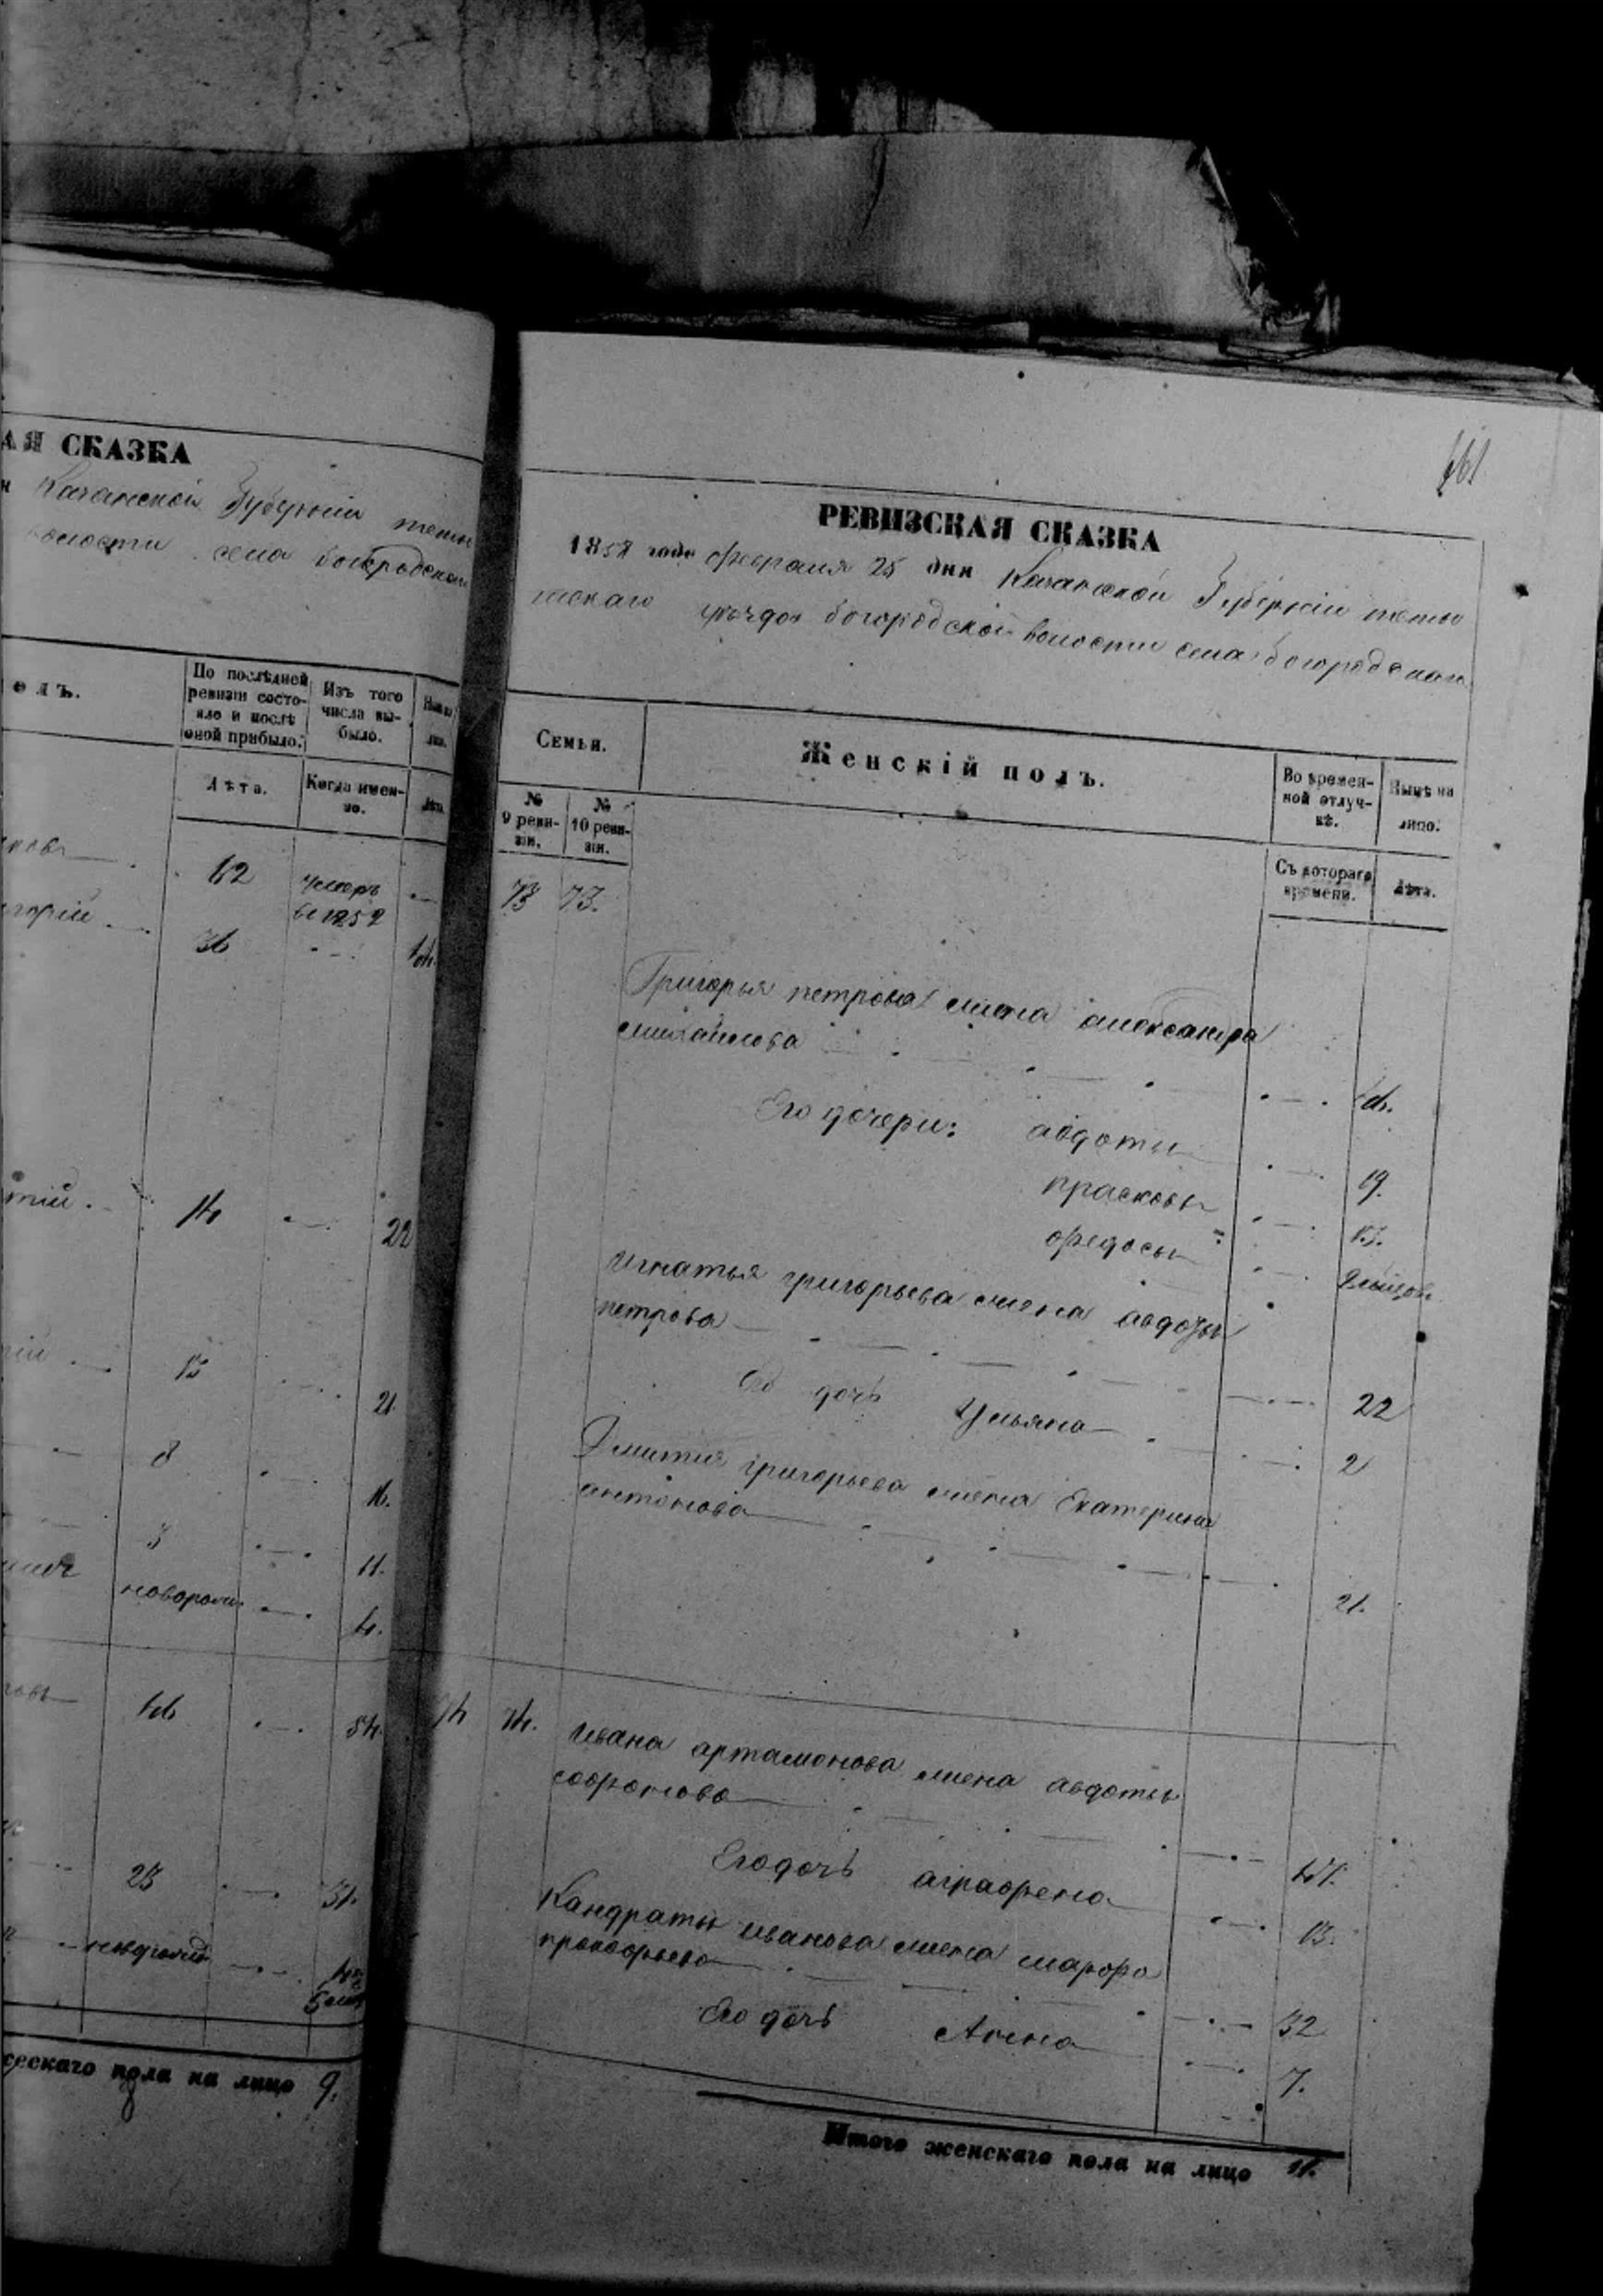 АЯ СКАЗКА
Казанской Губернии тетю
волости села богородскаго
олъ.
По последней ревизіи состояло и послѣ оной прибыло.
Изъ того числа выбыло.
Лѣта.
Когда именно.
62
умеръ
въ 1852
36
44.
14
22
13
21.
8
16.
3
11.
новорож.
4.
46
54.
23
31.
ческаго пола на лицо 9.
461
РЕВИЗСКАЯ СКАЗКА
1858 года февраля 25 дня Казанской Губерніи тетю
шскаго уѣзда богородской волости села богородскаго
Семьи.
Женскій полъ.
Во времен-
ной отлуч-
кѣ.
Нынѣ на
лицо.
№
9 реви-
зіи.
№
10 реви-
зіи.
Съ котораго
времени.
Лѣта.
73 73.
Григорья петрова жена александра
михайлова 44.
Его дочери: авдотья 19.
прасковья 13.
федосья
Игнатья григорьева жена авдотья
петрова 22
Его дочь Ульяна 2
Дмитрия григорьева жена Екатерина
антонова 21.
74 74. Ивана артамонова жена авдотья
софронова 47.
Его дочь аграфена 13.
Кандратья иванова жена марфа
прокофьева 32
Его дочь Анна 7.
Итого женскаго пола на лицо 11.